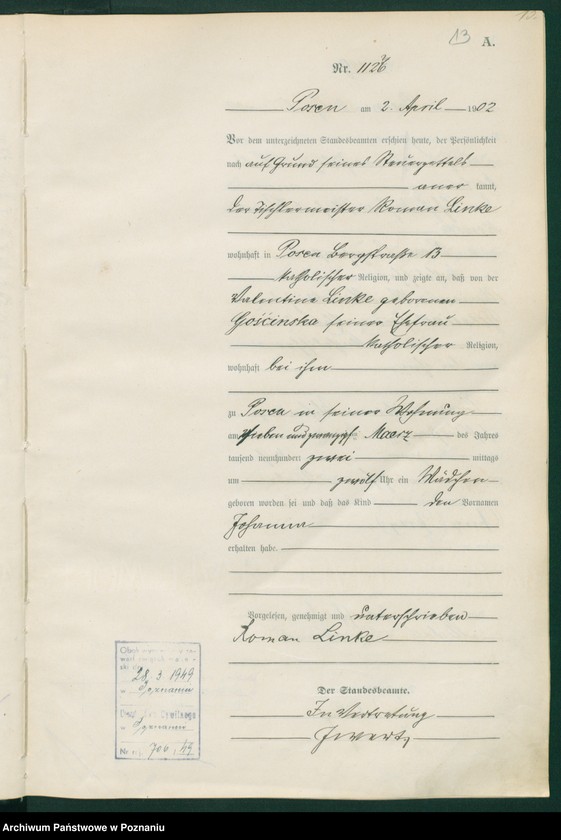 13
A.
Nr. 1126
Posen am 2. April 1902
Vor dem unterzeichneten Standesbeamten erschien heute, der Persönlichkeit
nach auf Grund seines Steuerzettels
aner kannt,
der Tischlermeister Roman Linke
wohnhaft in Posen Bergstraße 13
katholischer Religion, und zeigte an, daß von der
Valentine Linke geborenen
Gościnska seiner Ehefrau
katholischer Religion,
wohnhaft bei ihm
zu Posen in seiner Wohnung
am sieben und zwanzigsten Maerz des Jahres
tausend neunhundert zwei mittags
um zwölf Uhr ein Mädchen
geboren worden sei und daß das Kind den Vornamen
Johanna
erhalten habe.
Vorgelesen, genehmigt und unterschrieben
Roman Linke
Der Standesbeamte.
In Vertretung
28. 3. 1949
w
Cywilnego
w
Nr 706, 49
Archiwum Państwowe w Poznaniu